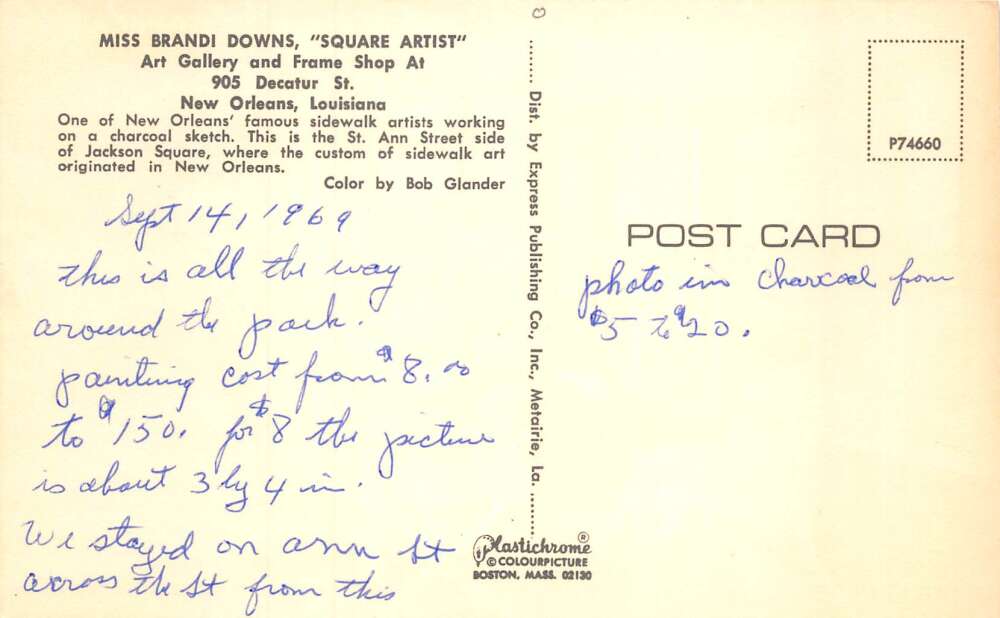 MISS BRANDI DOWNS, "SQUARE ARTIST"
Art Gallery and Frame Shop At
905 Decatur St.
New Orleans, Louisiana
One of New Orleans' famous sidewalk artists working
on a charcoal sketch. This is the St. Ann Street side
of Jackson Square, where the custom of sidewalk art
originated in New Orleans.
Color by Bob Glander
Sept 14, 1969
this is all the way
around the park.
painting cost from $8.00
to $150. for $8 the picture
is about 3 by 4 in.
We stayed on ann St
across the St from this
Dist. by Express Publishing Co., Inc., Metairie, La.
Plastichrome ®
© COLOURPICTURE
BOSTON, MASS. 02130
P74660
POST CARD
photo in charcoal from
$5 to $20.